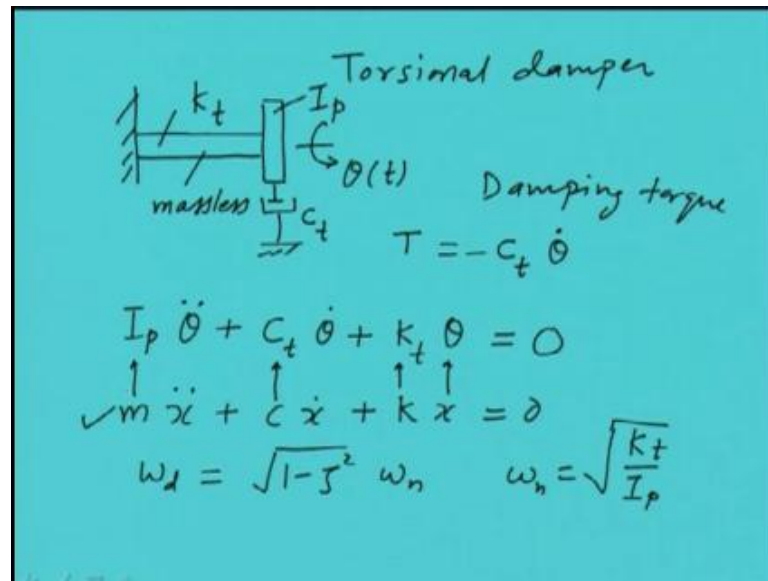 Torsional damper
k_t
I_p
θ(t)
massless
C_t
Damping torque
T = - C_t θ̇
I_p θ̈ + C_t θ̇ + k_t θ = 0
↑ ↑ ↑ ↑
✓ m ẍ + c ẋ + k x = 0
ω_d = √(1-ζ²) ω_n ω_n = √(k_t/I_p)